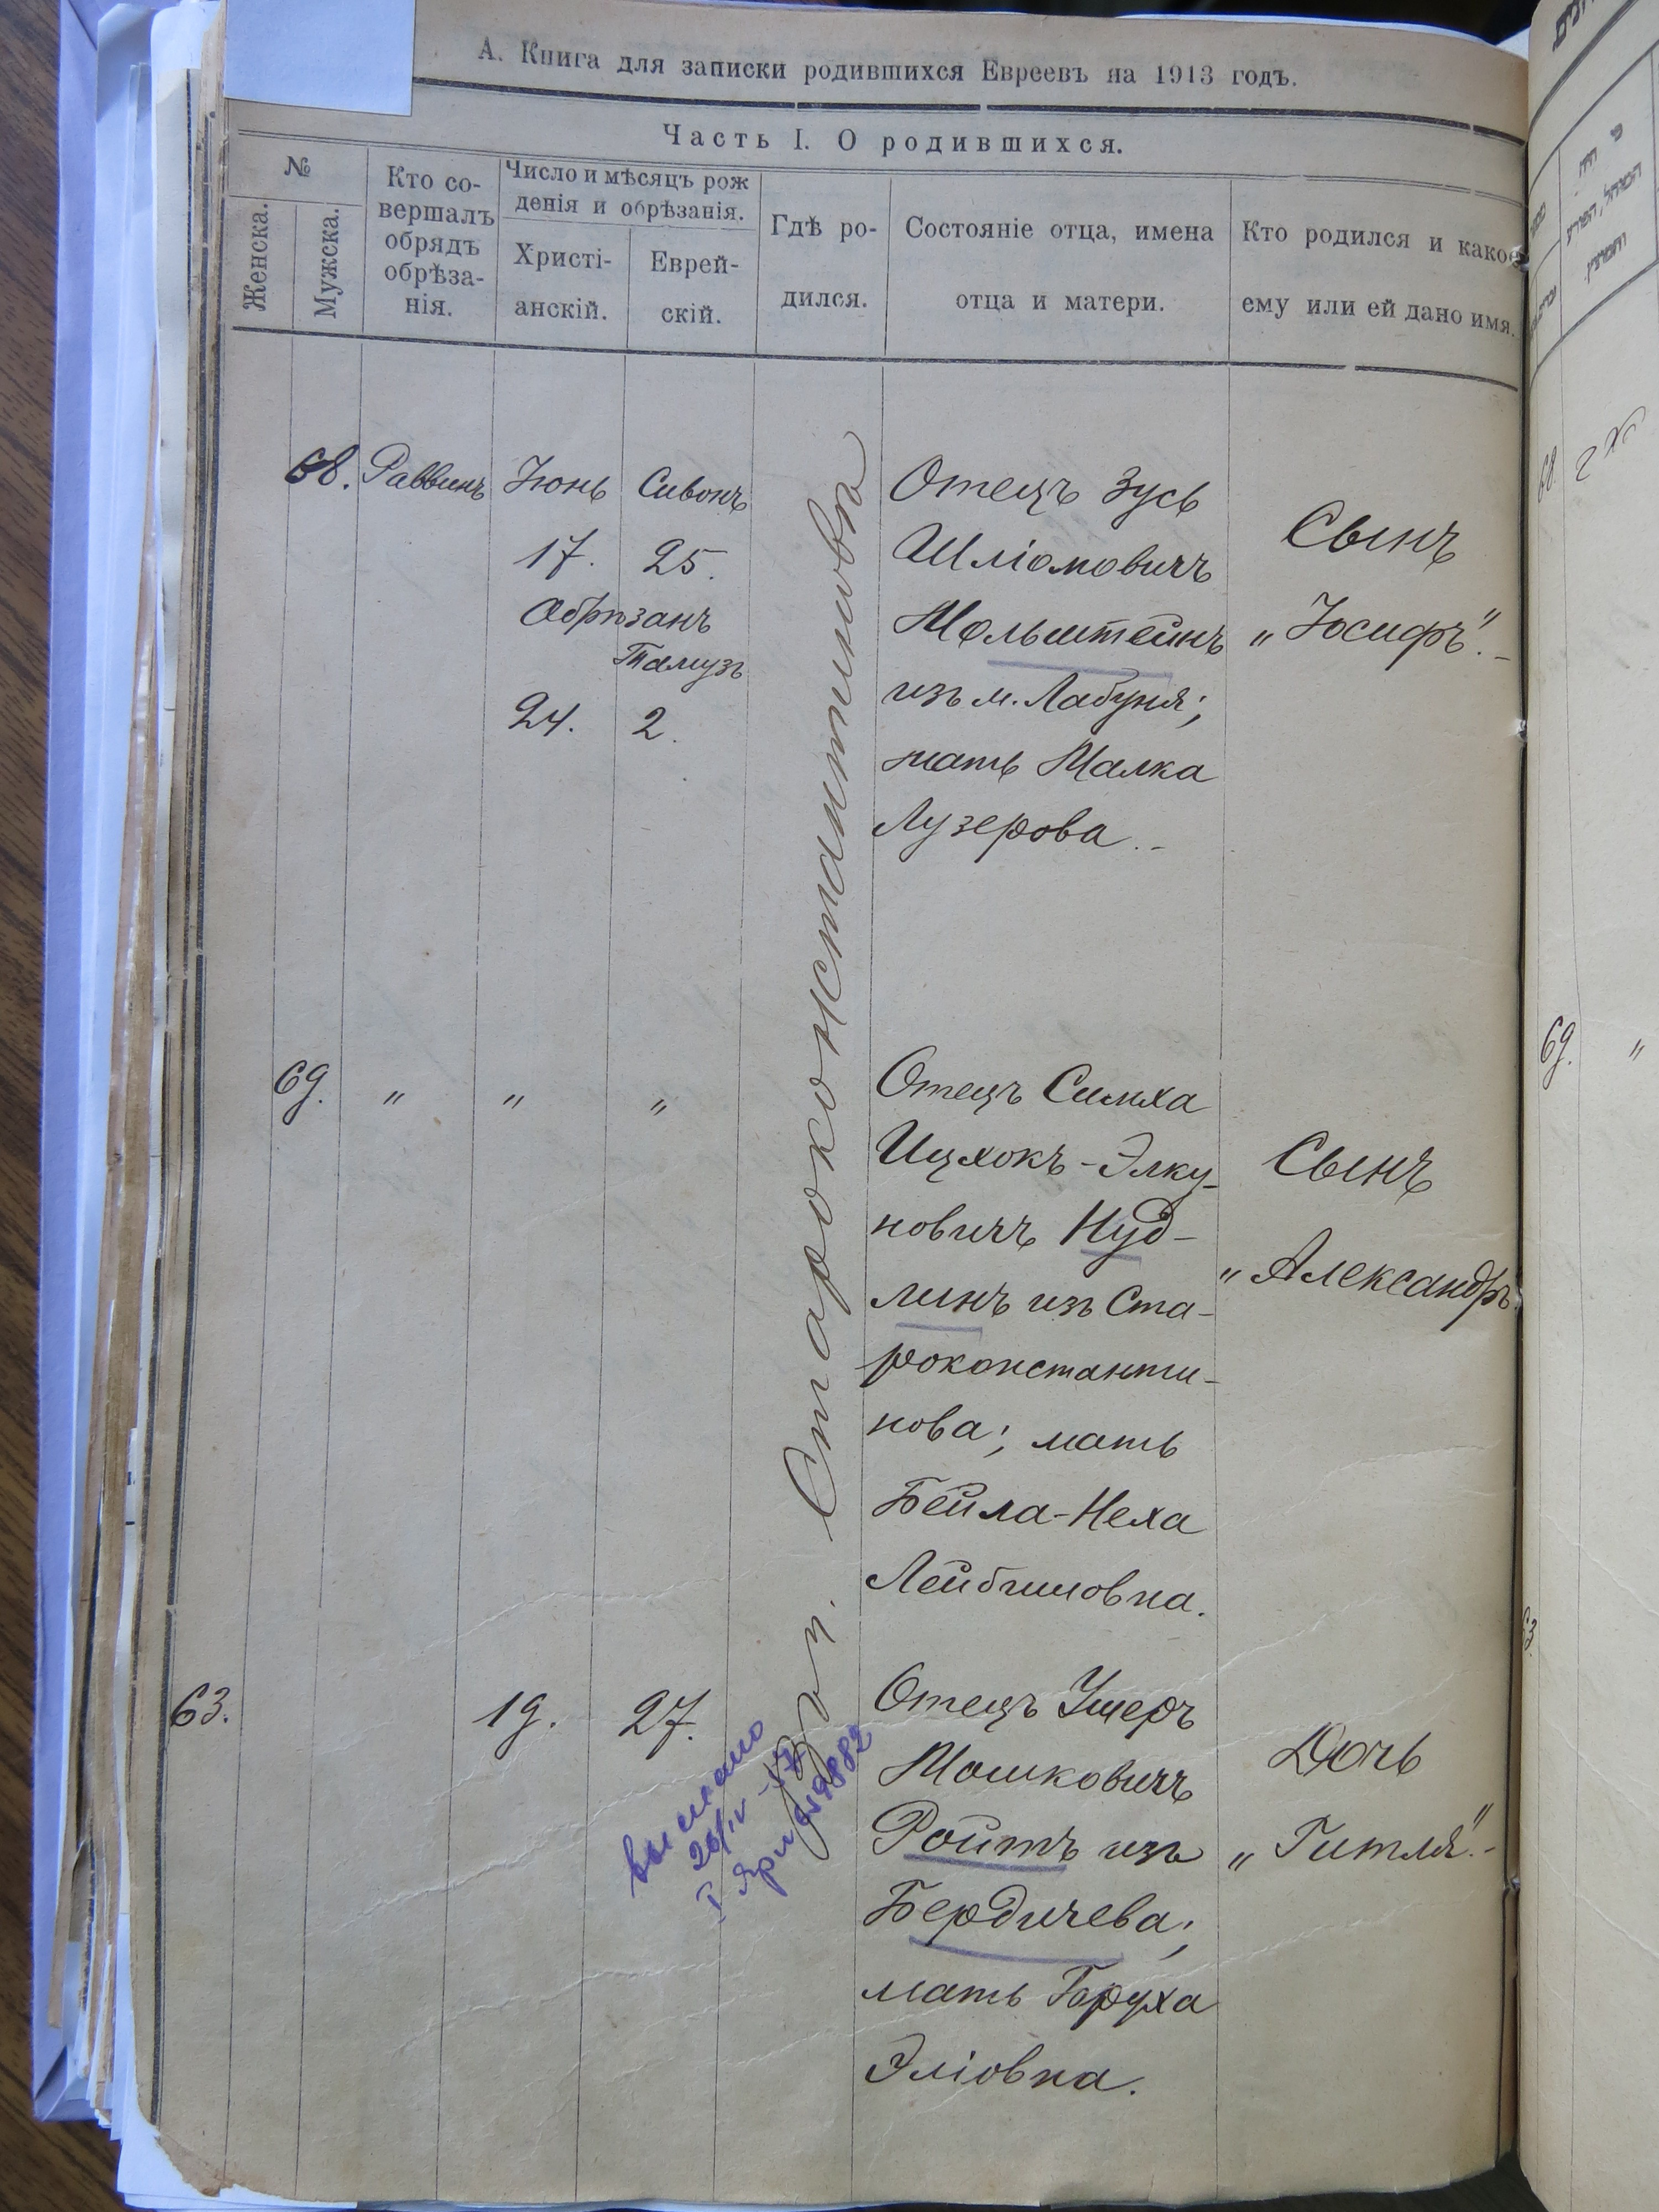 А. Книга для записки родившихся Евреевъ на 1913 годъ.
Часть I. О родившихся.
№
Женска.
Мужска.
Кто со-
вершалъ
обрядъ
обрѣза-
нія.
Число и мѣсяцъ рож
денія и обрѣзанія.
Христі-
анскій.
Еврей-
скій.
Гдѣ ро-
дился.
Состояніе отца, имена
отца и матери.
Кто родился и какое
ему или ей дано имя.
68. Раввинъ Іюнь Сивонъ
17. 25.
Обрѣзанъ
Тамузъ
24. 2.
Отецъ Зусь
Шліомовичъ
Мольштейнъ
изъ м. Лабуня;
мать Малка
Лузерова.-
Сынъ
„Іосифъ".-
въ г. Староконстантиновѣ
69. " " "
Отецъ Симха
Ицхокъ-Элку-
новичъ Нуд-
линъ изъ Ста-
роконстанти-
нова; мать
Бейла-Неха
Лейбишовна.
Сынъ
„Александръ
63. 19. 27.
Отецъ Ушеръ
Мошковичъ
Ройтъ изъ
Бердичева;
мать Боруха
Эліовна.
Дочь
„Гитля".-
выслано
68.
69. "
63